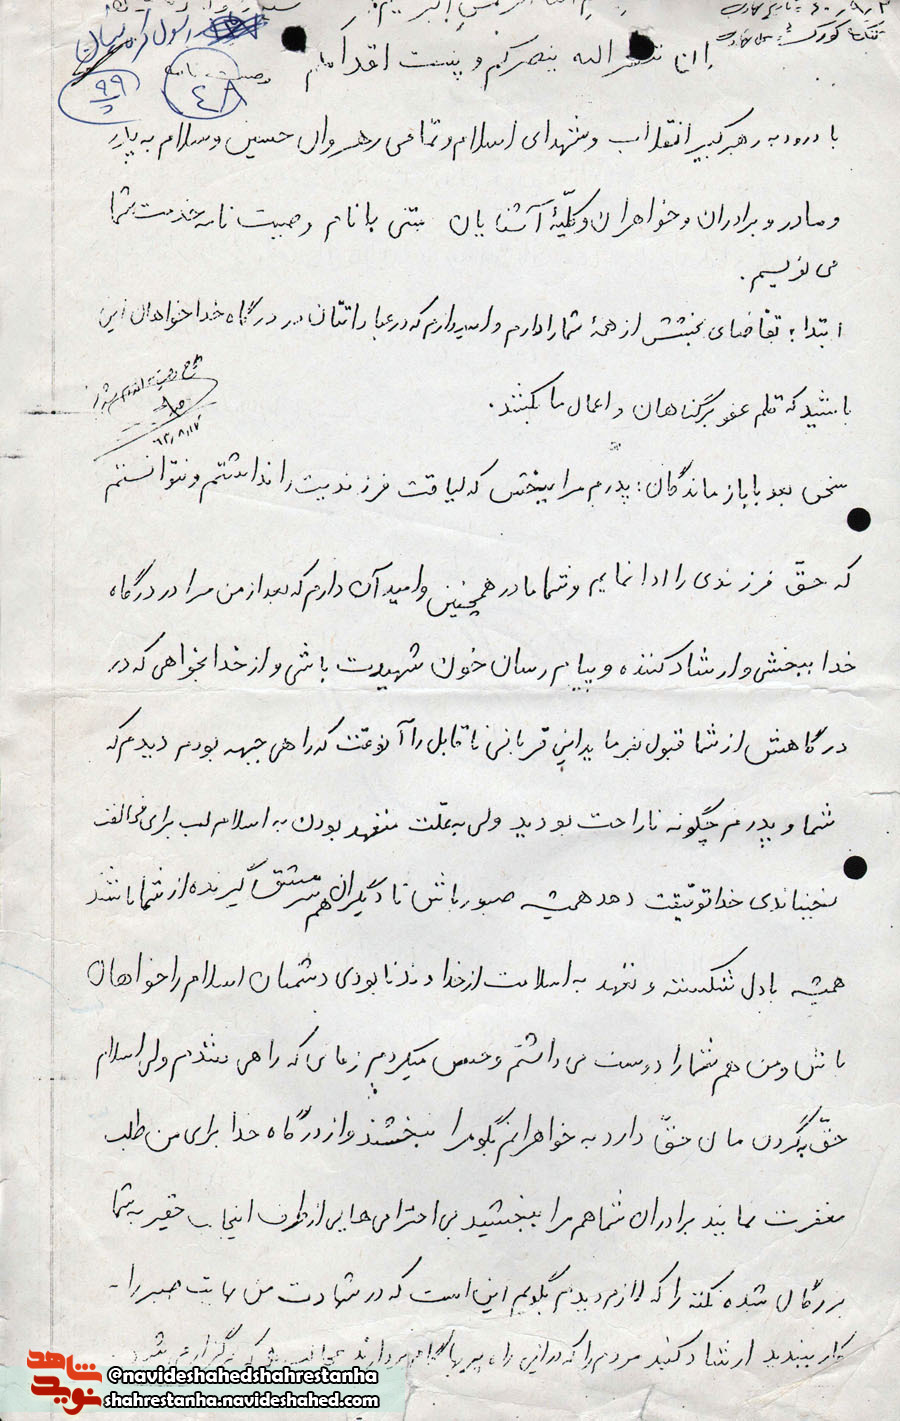 رسول کرمانیان
۹۹
۴۸
وصیت نامه
ان تنصر الله ینصرکم و یثبت اقدامکم
با درود به رهبر کبیر انقلاب و شهدای اسلام و تمامی رهروان حسین و سلام به پدر
و مادر و برادران و خواهران و کلیّهٔ آشنایان متنی با نام وصیت نامه خدمت شما
می نویسم.
ابتدا تقاضای بخشش از همهٔ شما را دارم و امیدوارم که در عباداتتان در درگاه خدا خواهان این
باشید که قلم عفو بر گناهان و اعمال ما بکشند.
۶۲/۸/۱۷
سخن بعد با بازماندگان: پدرم مرا ببخش که لیاقت فرزندیت را نداشتم و نتوانستم
که حقّ فرزندی را ادا نمایم و شما مادر همچنین و امید آن دارم که بعد از من مرا در درگاه
خدا ببخشی و ارشاد کننده و پیام رسان خون شهیدت باشی و از خدا بخواهی که در
درگاهش از شما قبول بفرماید این قربانی ناقابل را آنوقت که راهی جبهه بودم دیدم که
شما و پدرم چگونه ناراحت بودید ولی به علّت متعهد بودن به اسلام لب برای مخالفت
نجنباندی خدا توفیقت دهد همیشه صبور باش تا دیگران هم سرمشق گیرنده از شما باشند
همیشه با دل شکسته و تعهد به اسلامت از خداوند نابودی دشمنان اسلام را خواهان
باش و من هم شما را دوست می داشتم و حس میکردم زمانی که راهی میشدم ولی اسلام
حقّ به گردن مان حقّ دارد به خواهرانم بگو مرا ببخشند و از درگاه خدا برای من طلب
مغفرت نمایند برادران شما هم مرا ببخشید بی احترامی هایی از طرف اینجانب حقیر به شما
بزرگان شده نکته را که لازم دیدم بگویم این است که در شهادت من نهایت صبر را
بکار ببندید ارشاد کنید مردم را که در این راه
شاهد
نوید
@navideshahedshahrestanha
shahrestanha.navideshahed.com